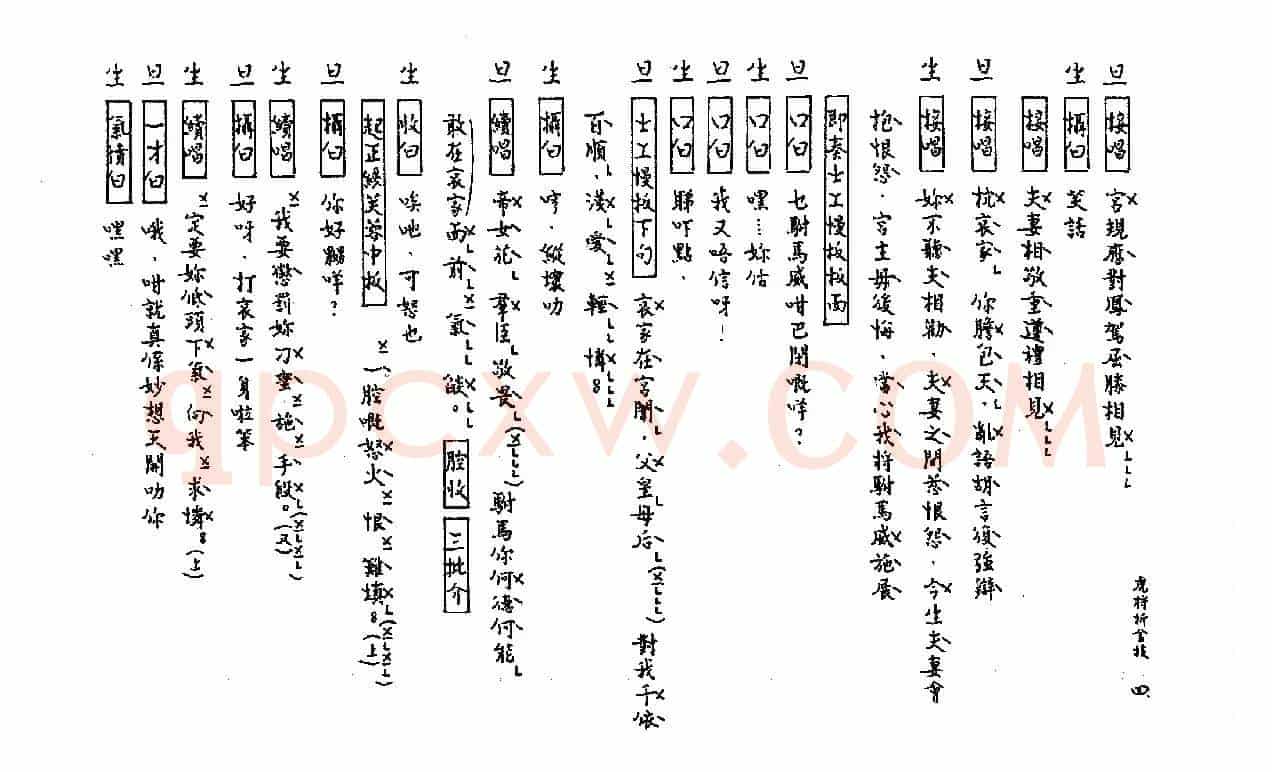 旦 接唱 宮規應對鳳駕屈膝相見
生 攝白 笑話
接唱 夫妻相敬重遵禮相見
旦 接唱 枕哀家。你膽包天。亂語胡言復強辯
生 接唱 妳不聽夫相勸．夫妻之間惹恨怨．今生夫妻會
抱恨怨．宮主毋後悔．當心我將駙馬威施展
即奏士工慢板板面
旦 口白 乜駙馬威咁巴閉嘅咩？
生 口白 嘿⋯妳估
旦 口白 我又唔信呀！
生 口白 睇吓點．
旦 士工慢板下句 哀家在宮闈．父皇母后(    )對我千依
百順．淺愛輕憐
生 攝白 哼．縱壞叻
旦 續唱 帝女花 羣臣敬畏(    )駙馬你何德何能
敢在哀家面前 氣燄。 腔收 三批介
生 收白 唉吔．可怒也
起正線芙蓉中板 一腔嘅怒火 恨難填(上)
旦 攝白 你好嬲咩？
生 續唱 我要懲罰妳刁蠻 施手段。(又)
旦 攝白 好呀．打哀家一身啦笨
生 續唱 定要妳低頭下氣 向我求憐(上)
旦 一才白 哦．咁就真係妙想天開叻你
生 氣憤白 嘿嘿
虎將折金枝 四
qpcxw.com